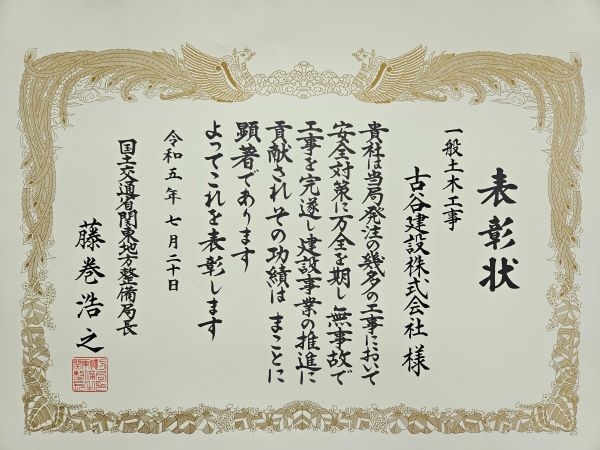 表彰状
一般土木工事
古谷建設株式会社 様
貴社は当局発注の幾多の工事において
安全対策に万全を期し 無事故で
工事を完遂し 建設事業の推進に
貢献され その功績は まことに
顕著であります
よってこれを表彰します
令和五年 七月二十日
国土交通省関東地方整備局長
藤巻浩之